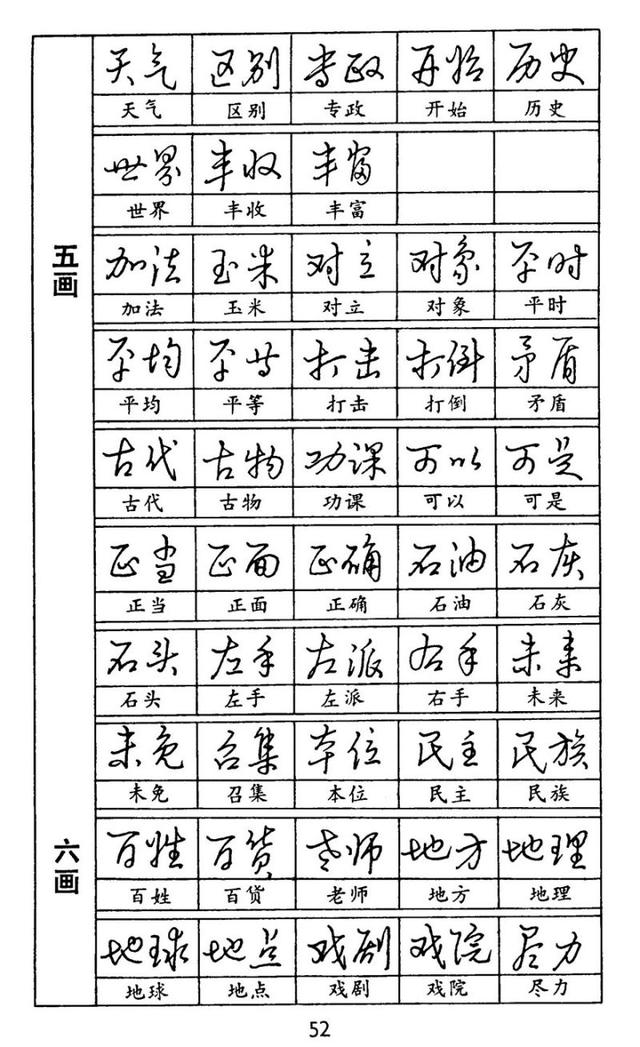 天气 区别 专政 开始 历史
天气 区别 专政 开始 历史
世界 丰收 丰富
世界 丰收 丰富
五画
加法 玉米 对立 对象 平时
加法 玉米 对立 对象 平时
平均 平等 打击 打倒 矛盾
平均 平等 打击 打倒 矛盾
古代 古物 功课 可以 可是
古代 古物 功课 可以 可是
正当 正面 正确 石油 石灰
正当 正面 正确 石油 石灰
石头 左手 左派 右手 未来
石头 左手 左派 右手 未来
未免 召集 本位 民主 民族
未免 召集 本位 民主 民族
六画
百姓 百货 老师 地方 地理
百姓 百货 老师 地方 地理
地球 地点 戏剧 戏院 尽力
地球 地点 戏剧 戏院 尽力
52